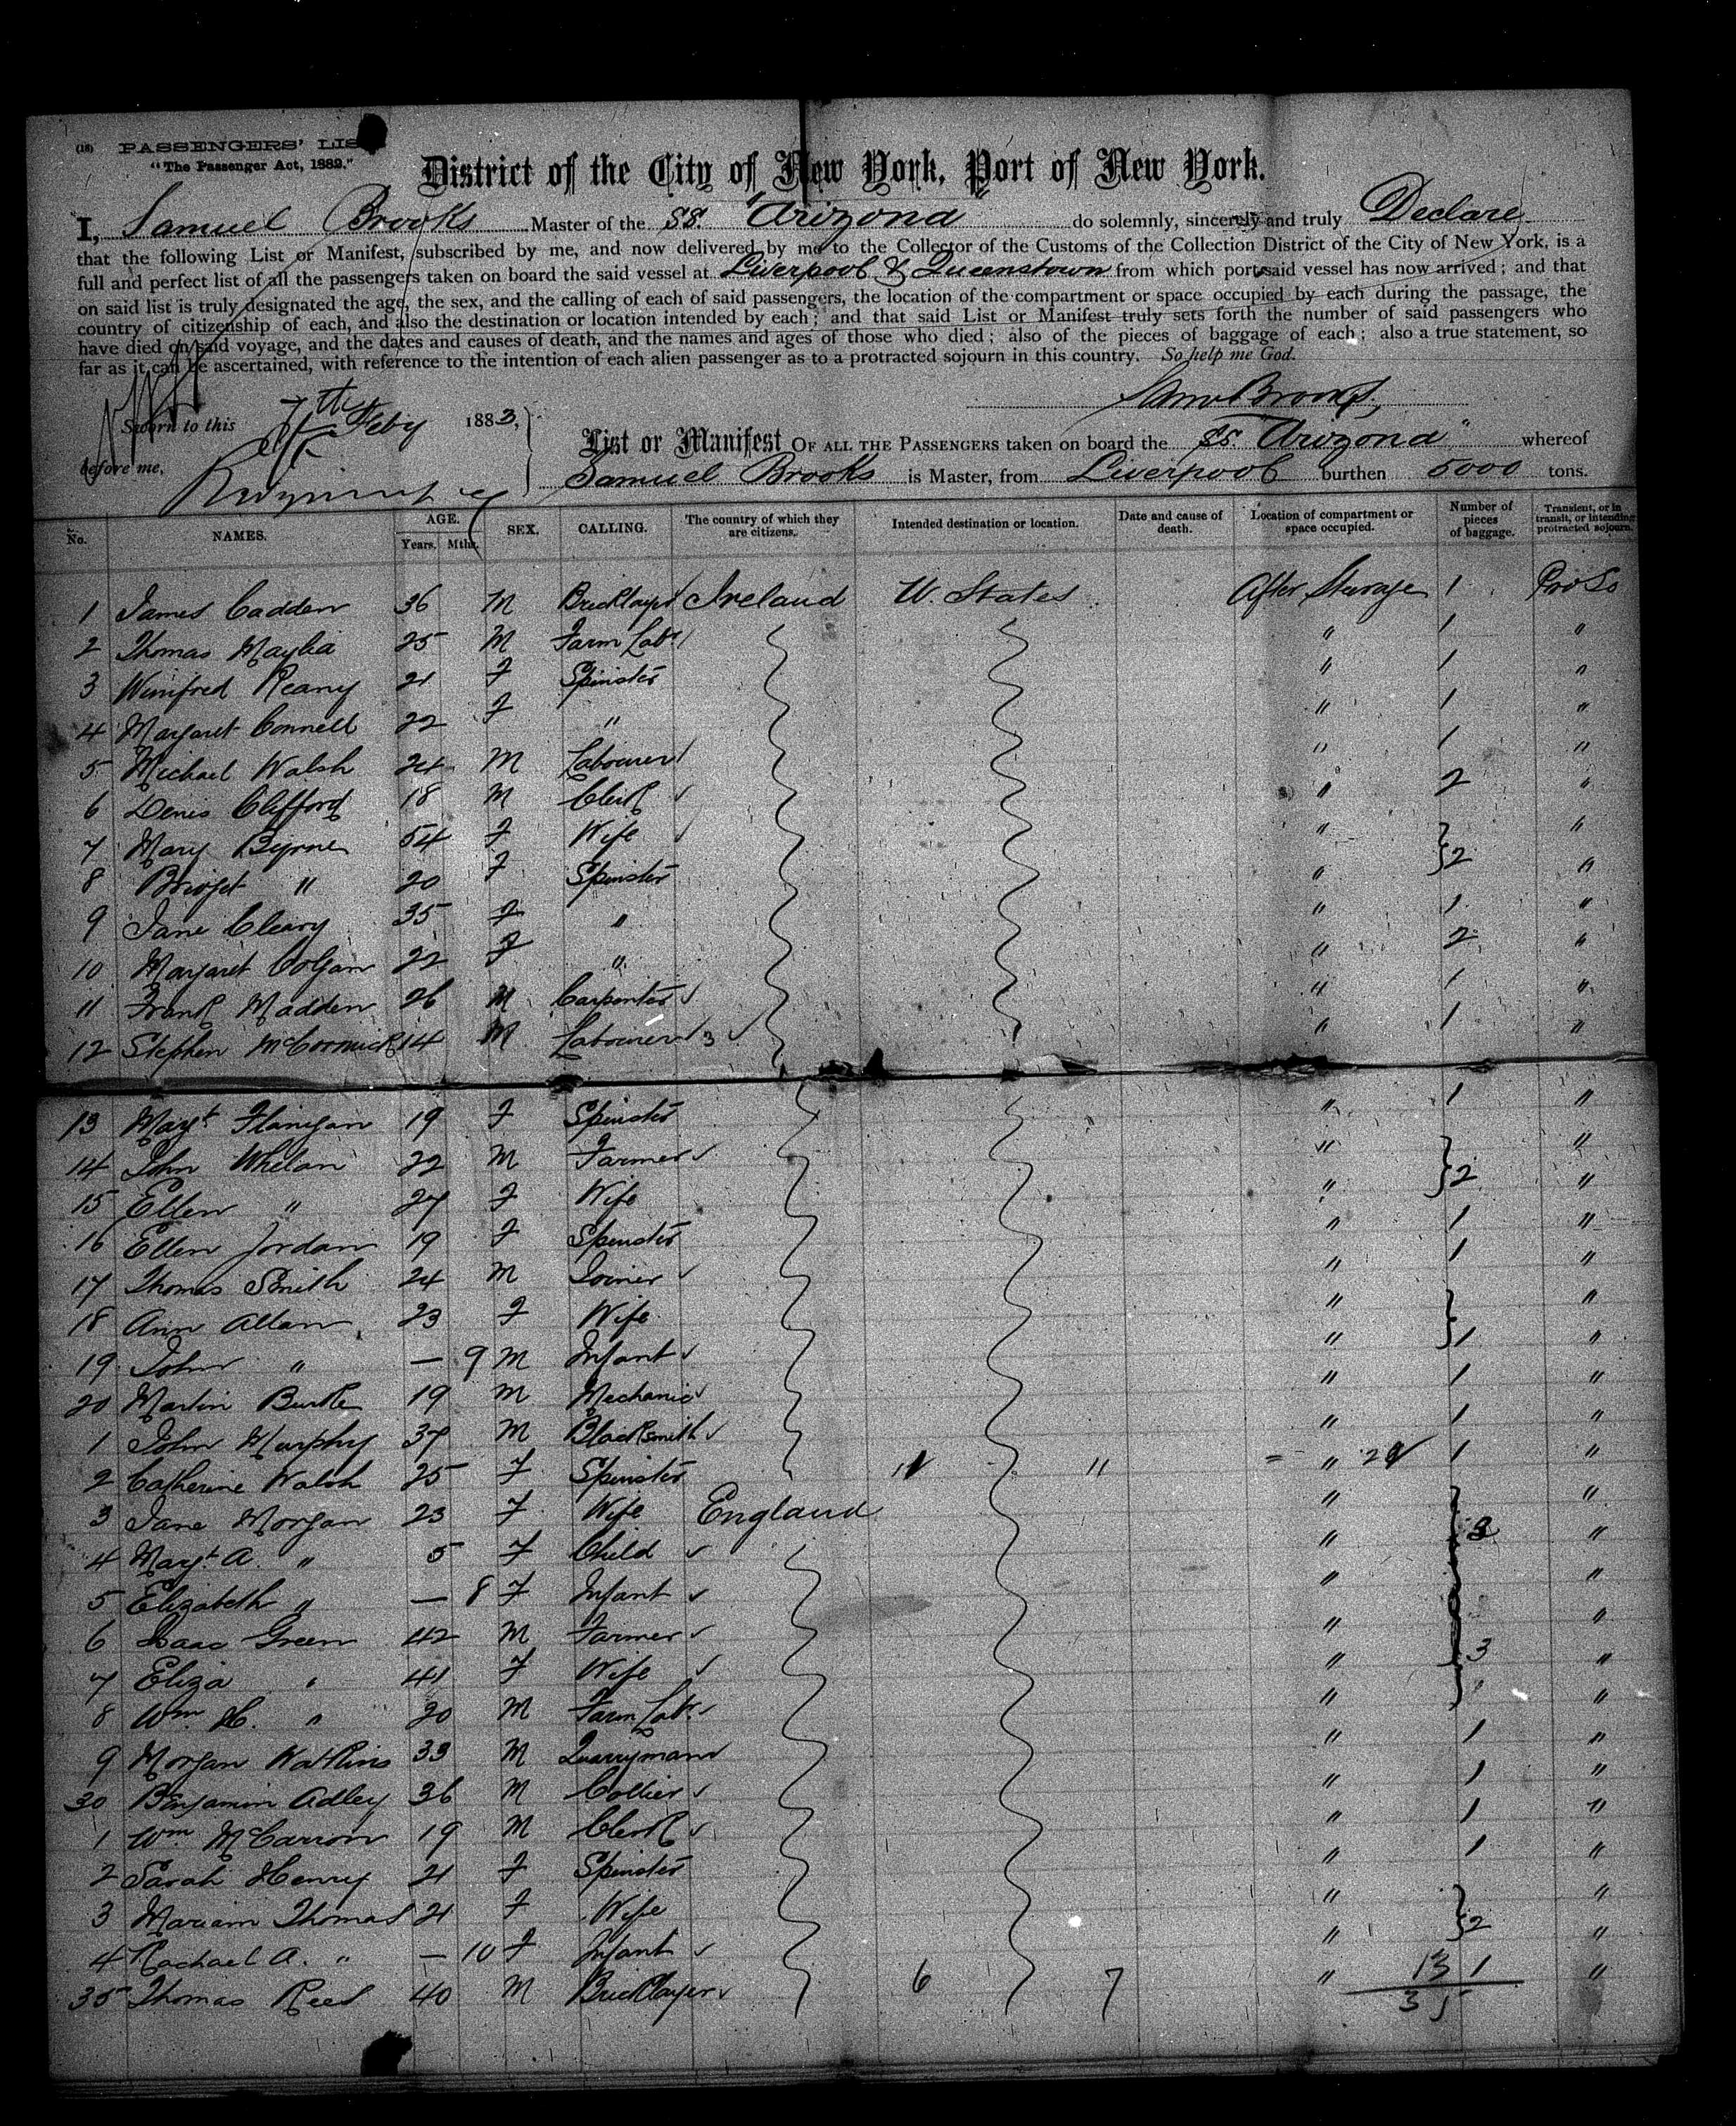 (18) PASSENGERS' LIST
"The Passenger Act, 1882."
District of the City of New York, Port of New York.
I, Samuel Brooks Master of the SS. "Arizona" do solemnly, sincerely and truly Declare
that the following List or Manifest, subscribed by me, and now delivered by me to the Collector of the Customs of the Collection District of the City of New York, is a
full and perfect list of all the passengers taken on board the said vessel at Liverpool & Queenstown from which port said vessel has now arrived; and that
on said list is truly designated the age, the sex, and the calling of each of said passengers, the location of the compartment or space occupied by each during the passage, the
country of citizenship of each, and also the destination or location intended by each; and that said List or Manifest truly sets forth the number of said passengers who
have died on said voyage, and the dates and causes of death, and the names and ages of those who died; also of the pieces of baggage of each; also a true statement, so
far as it can be ascertained, with reference to the intention of each alien passenger as to a protracted sojourn in this country. So help me God.
Saml Brooks
Sworn to this 7th Feby 1883,
before me,
List or Manifest OF ALL THE PASSENGERS taken on board the SS. Arizona" whereof
Samuel Brooks is Master, from Liverpool burthen 5000 tons.
No. NAMES. AGE. Years. Mths. SEX. CALLING. The country of which they are citizens. Intended destination or location. Date and cause of death. Location of compartment or space occupied. Number of pieces of baggage. Transient, or in transit, or intending protracted sojourn.
1 James Cadden 36 M Bricklayer Ireland U. States After Steerage 1 Pro So
2 Thomas Maylia 25 M Farm Labr " 1 "
3 Winifred Reany 21 F Spinster " 1 "
4 Margaret Connell 22 F " " 1 "
5 Michael Walsh 24 M Labourer " 1 "
6 Denis Clifford 18 M Clerk " 2 "
7 Mary Byrne 54 F Wife " "
8 Bridget " 20 F Spinster " 2 "
9 Jane Cleary 35 F " " 1 "
10 Margaret Colgan 22 F " " 2 "
11 Frank Madden 26 M Carpenter " 1 "
12 Stephen McCormick 14 M Labourer 3 " 1 "
13 Margt Flanigan 19 F Spinster " 1 "
14 John Whelan 22 M Farmer " "
15 Ellen " 27 F Wife " 2 "
16 Ellen Jordan 19 F Spinster " 1 "
17 Thomas Smith 24 M Joiner " 1 "
18 Ann Allan 23 F Wife " "
19 John " — 9 M Infant " 1 "
20 Martin Burke 19 M Mechanic " 1 "
1 John Murphy 37 M Blacksmith " 1 "
2 Catherine Walsh 25 F Spinster 11 11 " 1 "
3 Jane Morgan 23 F Wife England " "
4 Margt A. " 5 F Child " 3 "
5 Elizabeth " — 8 F Infant " "
6 Isaac Green 42 M Farmer " "
7 Eliza " 41 F Wife " 3 "
8 Wm H. " 20 M Farm Labr " "
9 Morgan Watkins 33 M Quarryman " 1 "
30 Benjamin Adley 36 M Collier " 1 "
1 Wm McCarron 19 M Clerk " 1 "
2 Sarah Henry 21 F Spinster " 1 "
3 Mariam Thomas 21 F Wife " "
4 Rachael A. " — 10 F Infant " 2 "
35 Thomas Reed 40 M Bricklayer 6 7 " 13 1 "
35